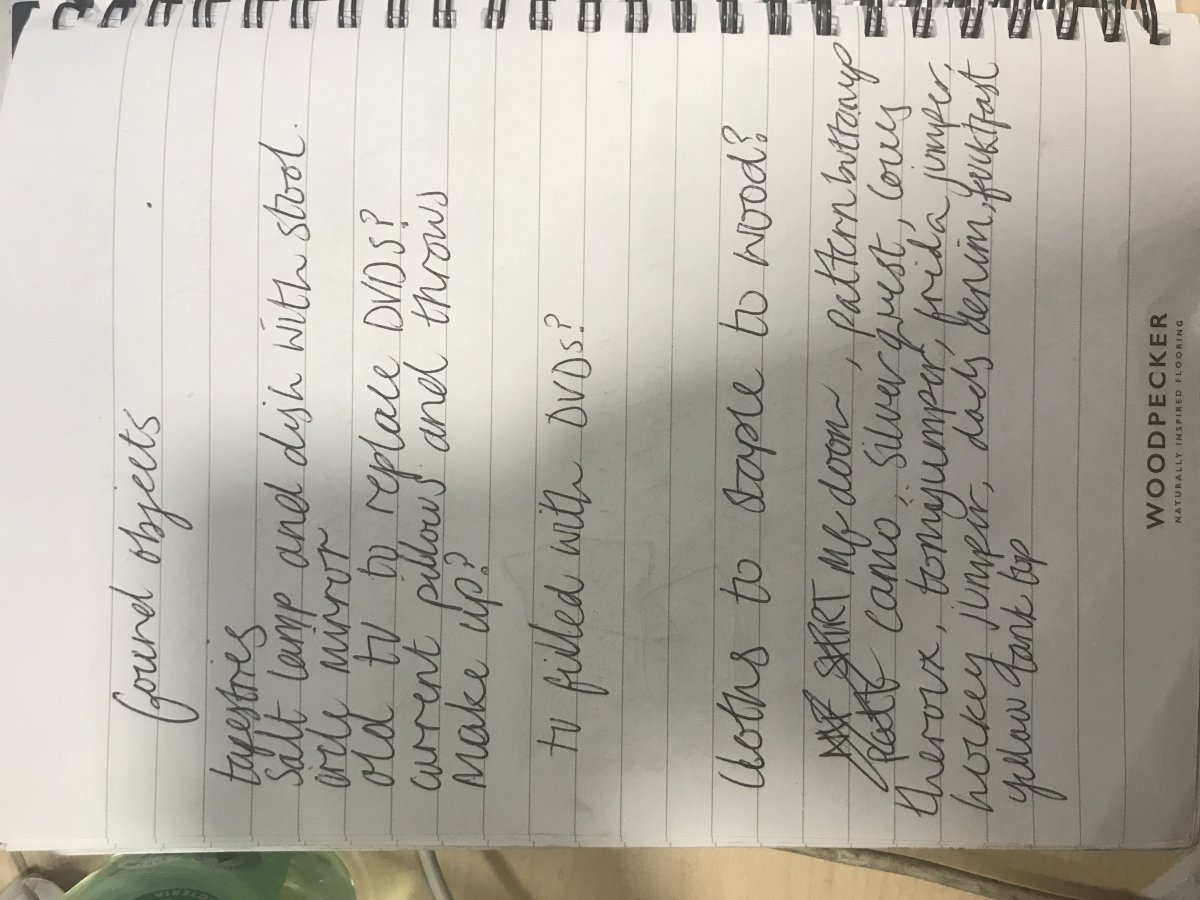 found objects
tapestries
Salt lamp and dish with stool.
mirror
old tv to replace DVDs?
current pillows and throws
make up?
tv filled with DVDs?
cloths to staple to wood?
SHIRT mf doom, pattern buttonup
camo, silver guest, Louis
theroux, tomy jumper, frida jumper,
hockey jumper, dads denim, fucktfast
yellow tank top
WOODPECKER
NATURALLY INSPIRED FLOORING